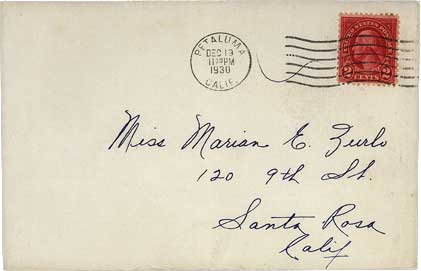 PETALUMA
DEC 13
11 PM
1930
CALIF.
UNITED STATES POSTAGE
2 CENTS 2
Miss Marian E. Zurlo
120 9th St.
Santa Rosa
Calif